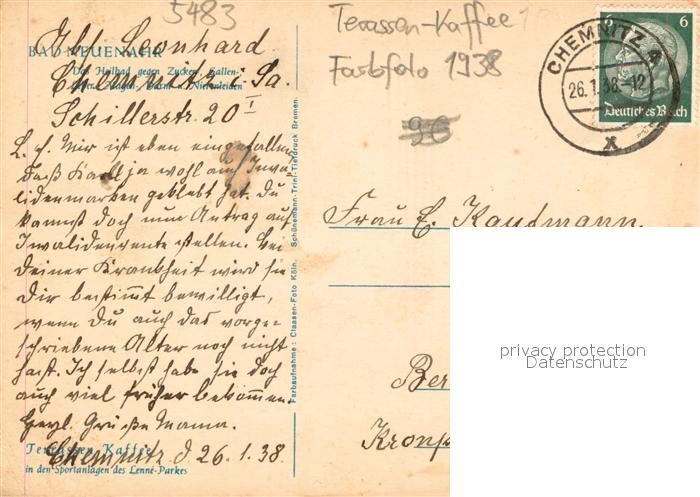 5483
Terassen-Kaffee
Farbfoto 1938
96
CHEMNITZ 4
26.1.38.-12
X
6 6
Deutsches Reich
BAD NEUENAHR
Das Heilbad gegen Zucker, Gallen-
Leber-, Magen-, Darm- u. Nierenleiden
Leonhard
Chemnitz i. Sa.
Schillerstr. 20 I
L. E. Mir ist eben eingefallen,
daß Karl ja wohl auch Inva-
lidenmarken geklebt hat. Du
kannst doch nun Antrag auf
Invalidenrente stellen. Bei
Deiner Krankheit wird sie
Dir bestimmt bewilligt,
wenn Du auch das vorge-
schriebene Alter noch nicht
hast. Ich selbst habe sie doch
auch viel früher bekommen.
Herzl. Grüße Mama.
Chemnitz d 26.1.38.
Terrassen Kaffee
in den Sportanlagen des Lenné-Parkes
Farbaufnahme: Claasen-Foto Köln. Schünemann-Trini-Tiefdruck Bremen.
Frau E. Kaufmann.
Ber
Kronp
privacy protection
Datenschutz